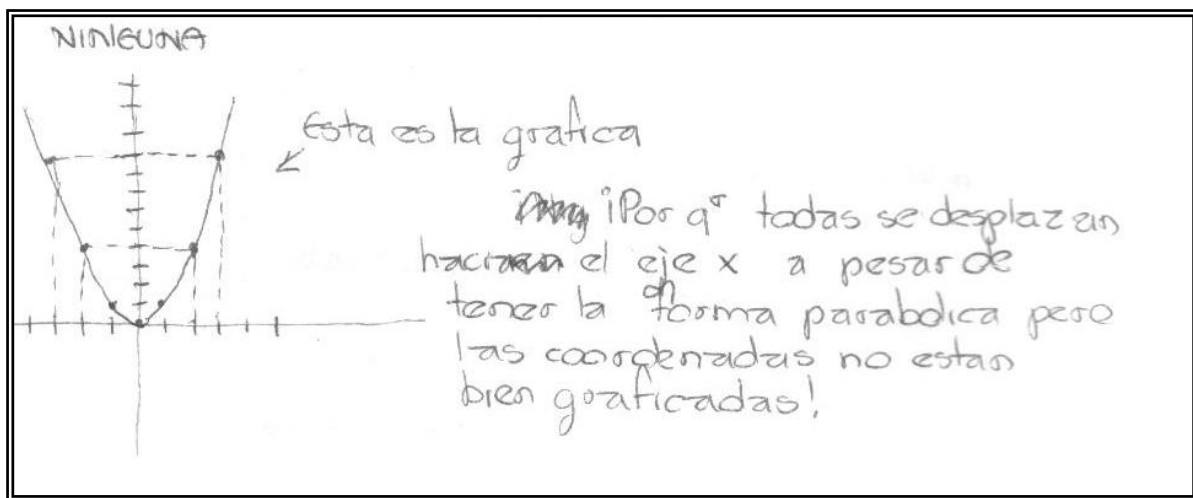 NINGUNA
Esta es la grafica
¡Por q' todas se desplazan
hacia el eje x a pesar de
tener la forma parabolica pero
las coordenadas no estan
bien graficadas!